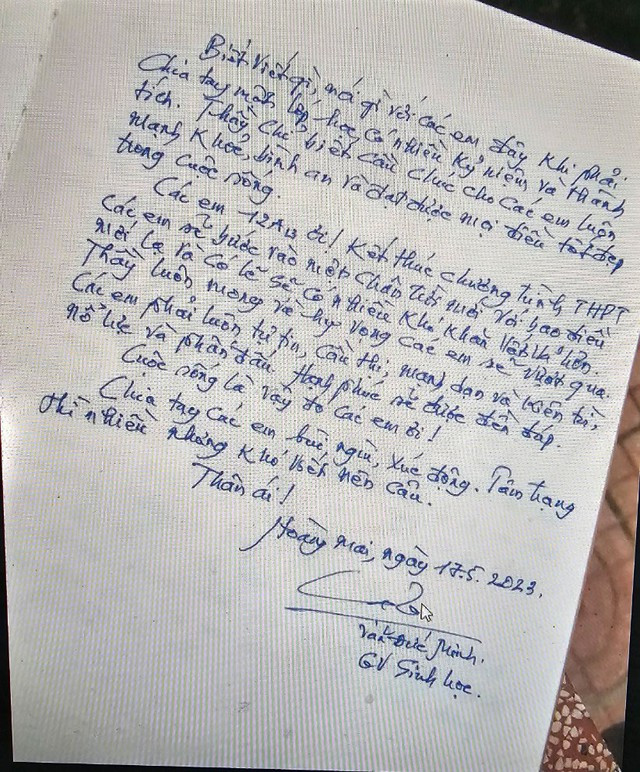 Biết viết gì, nói gì với các em đây khi phải
chia tay một lớp học có nhiều kỷ niệm và thành
tích. Thầy chỉ biết cầu chúc cho các em luôn
mạnh khỏe, bình an và đạt được mọi điều tốt đẹp
trong cuộc sống.
Các em 12A13 ơi! Kết thúc chương trình THPT
các em sẽ bước vào một chân trời mới với bao điều
mới lạ và có lẽ sẽ có nhiều khó khăn vất vả hơn.
Thầy luôn mong và hy vọng các em sẽ vượt qua.
Các em phải luôn tự tin, cầu thị, mạnh dạn và kiên trì,
nỗ lực và phấn đấu. Hạnh phúc sẽ được đền đáp.
Cuộc sống là vậy đó các em ơi!
Chia tay các em bùi ngùi, xúc động. Tâm trạng
thì nhiều nhưng khó viết nên câu.
Thân ái!
Hoàng Mai, ngày 17.5.2023.
Văn Đức Minh.
GV Sinh học.